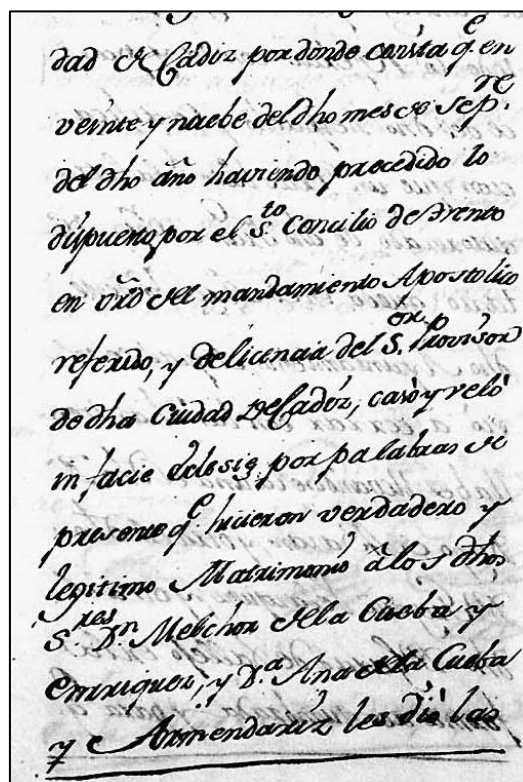 dad de Cadiz por donde consta q.e en
veinte y nuebe del dho mes de Sep.re
del dho año haviendo precedido lo
dispuesto por el S.to Concilio de Trento
en vrd del mandamiento Apostolico
referido, y de licencia del S.or Provisor
de dha Ciudad de Cadiz, casò y velò
in facie eclesię por palabras de
presente q.e hicieron verdadero y
legitimo Matrimonio â los dhos
S.res D.n Melchor de la Cueba y
Enrriquez, y D.a Ana de la Cueba
y Armendariz les diò las